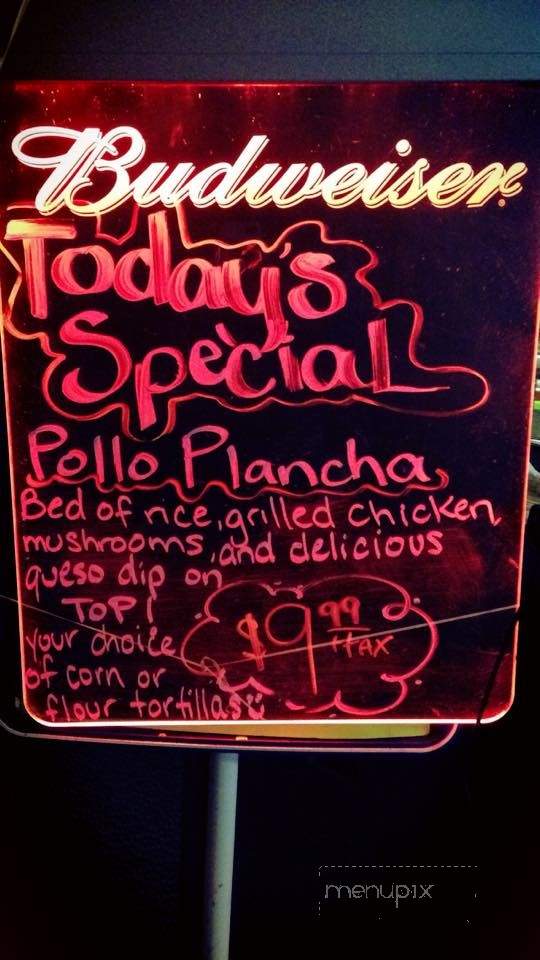 Budweiser
Today's
Special
Pollo Plancha
Bed of rice, grilled chicken,
mushrooms, and delicious
queso dip on
TOP!
$9.99
+tax
your choice
of corn or
flour tortillas
menupix